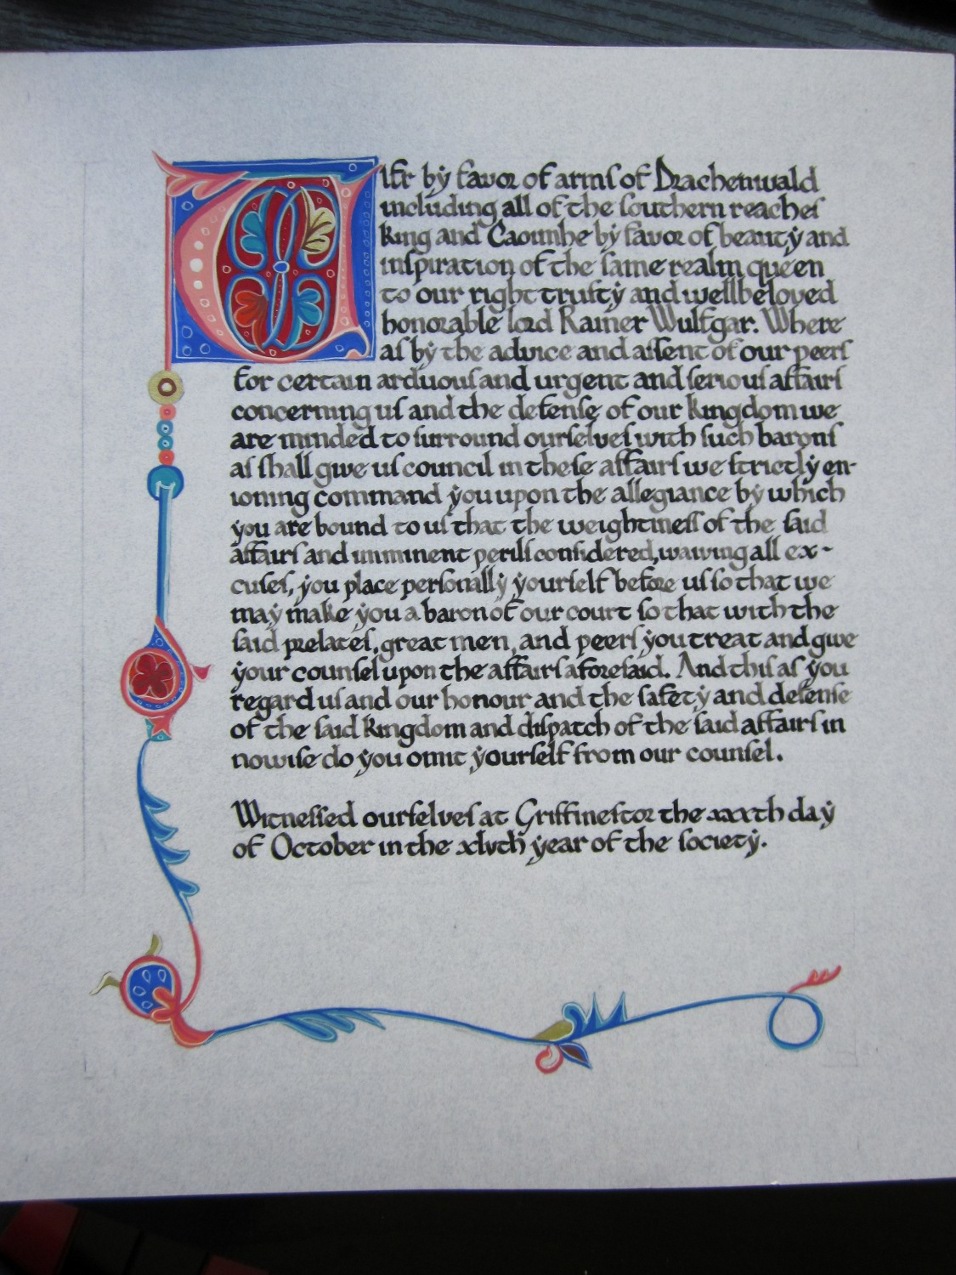 Ulfr by favor of arms of Drachenwald
including all of the southern reaches
King and Caoimhe by favor of beauty and
inspiration of the same realm queen
to our right trusty and wellbeloved
honorable lord Rainer Wulfgar. Where
as by the advice and assent of our peers
for certain arduous and urgent and serious affairs
concerning us and the defense of our kingdom we
are minded to surround ourselves with such barons
as shall give us council in these affairs we strictly en-
ioning command you upon the allegiance by which
you are bound to us that the weightiness of the said
affairs and imminent perils considered, waiving all ex-
cuses, you place personally yourself before us so that we
may make you a baron of our court so that with the
said prelates, great men, and peers you treat and give
your counsel upon the affairs aforesaid. And this as you
regard us and our honour and the safety and defense
of the said kingdom and dispatch of the said affairs in
nowise do you omit yourself from our counsel.
Witnessed ourselves at Griffinestor the xxxth day
of October in the xlvth year of the society.